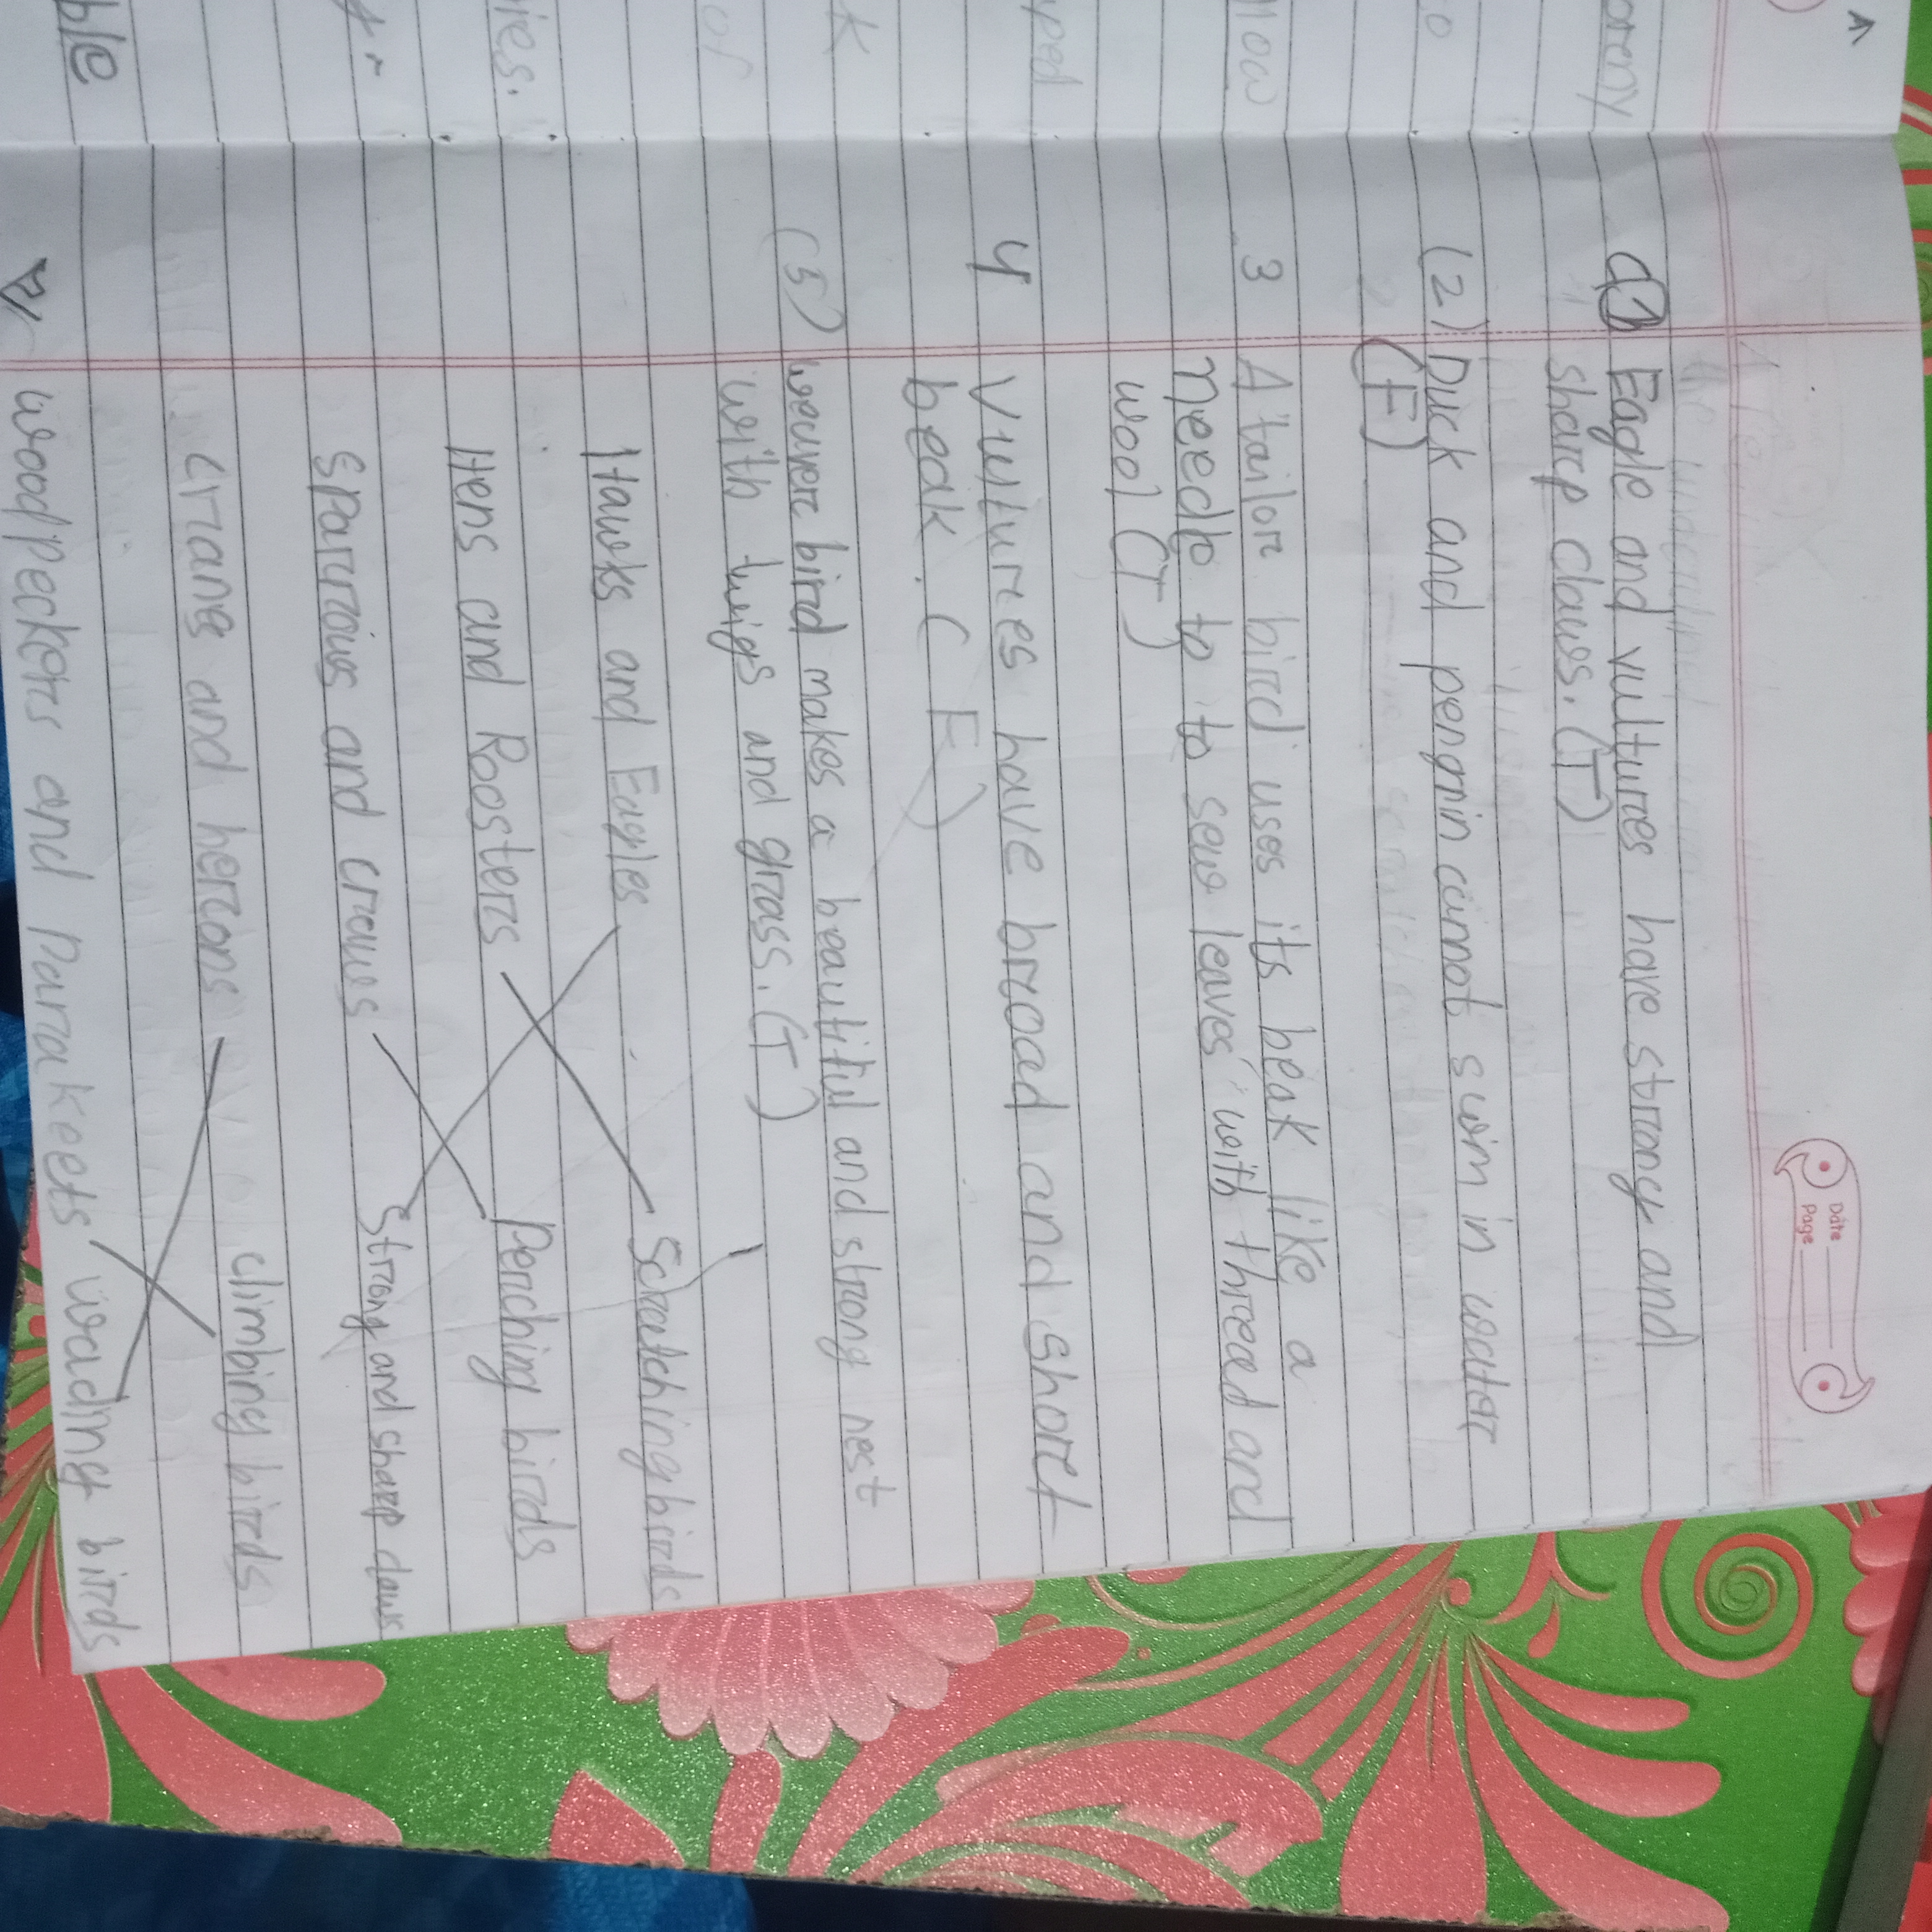 Date
Page
d 1 Eagle and vultures have strong and
sharp claws. (T)
(2) Duck and pengnin cannot swim in water
(F)
3 A tailor bird uses its beak like a
needle to to sew leaves with thread and
wool (T)
4 Vultures have broad and short
beak. (F)
(5) weaver bird makes a beautiful and strong nest
with twigs and grass. (T)
Hawks and Eagles Scratching birds
Hens and Roosters Perching birds
Sparrows and crows Strong and sharp claws
Crane and herons climbing birds
woodpeckers and Parrakeets wading birds
llow
yped
k
of
ries.
ble